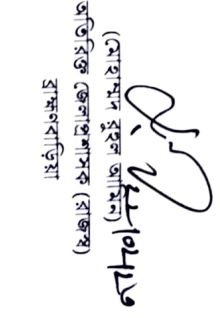 (মোহাম্মদ রুহুল আমিন)
অতিরিক্ত জেলাপ্রশাসক (রাজস্ব)
ব্রাহ্মণবাড়িয়া